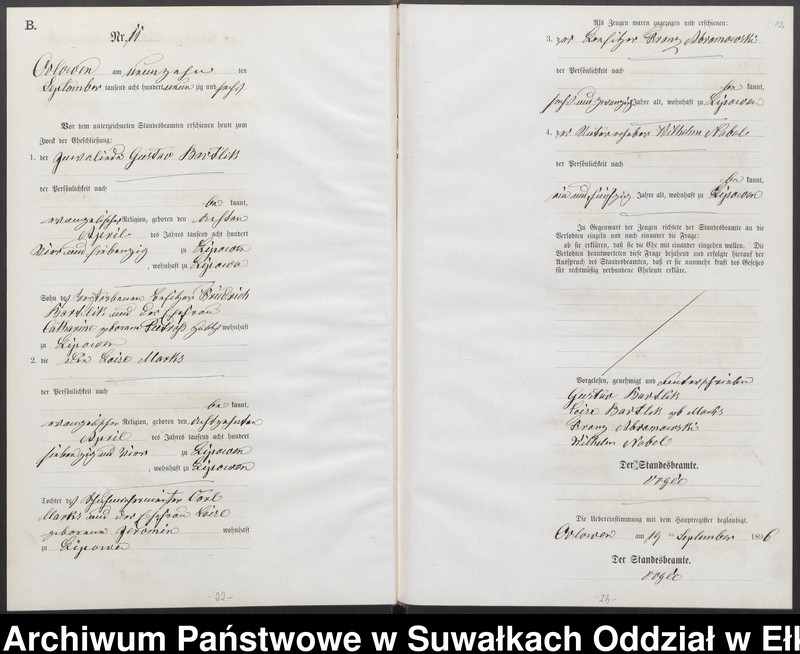 B.
Nr. 11
Orlowen am neunzehn ten
September tausend acht hundert neun zig und sechs
Vor dem unterzeichneten Standesbeamten erschienen heute zum
Zweck der Eheschließung:
1. der Gustav Bartlik
der Persönlichkeit nach
be kannt,
evangelischer Religion, geboren den
April des Jahres tausend acht hundert
vier und siebenzig zu Lipowen
, wohnhaft zu Lipowen
Sohn des verstorbenen Besitzers Friedrich
Bartlik und der Ehefrau
Catharine geborene wohnhaft
zu Lipowen
2. die Loise Marks
der Persönlichkeit nach
be kannt,
evangelischer Religion, geboren den achtzehnten
April des Jahres tausend acht hundert
siebenzig und vier zu Lipowen
, wohnhaft zu Lipowen
Tochter des Schuhmachermeister Carl
Marks und der Ehefrau Loise
geborene Jeromin wohnhaft
zu Lipowen
-22-
Als Zeugen waren zugezogen und erschienen:
3. der Besitzer Franz Abramowski
der Persönlichkeit nach
be kannt,
sechs und zwanzig Jahre alt, wohnhaft zu Lipowen
4. der Wilhelm Nabel
der Persönlichkeit nach
be kannt,
ein und fünfzig Jahre alt, wohnhaft zu Lipowen
In Gegenwart der Zeugen richtete der Standesbeamte an die
Verlobten einzeln und nach einander die Frage:
ob sie erklären, daß sie die Ehe mit einander eingehen wollen. Die
Verlobten beantworteten diese Frage bejahend und erfolgte hierauf der
Ausspruch des Standesbeamten, daß er sie nunmehr kraft des Gesetzes
für rechtmäßig verbundene Eheleute erkläre.
Vorgelesen, genehmigt und unterschrieben
Gustav Bartlik
Loise Bartlik geb Marks
Franz Abramowski
Wilhelm Nabel
Der Standesbeamte.
Die Uebereinstimmung mit dem Hauptregister beglaubigt.
Orlowen am 19 ten September 1896
Der Standesbeamte.
-23-
Archiwum Państwowe w Suwałkach Oddział w Ełk